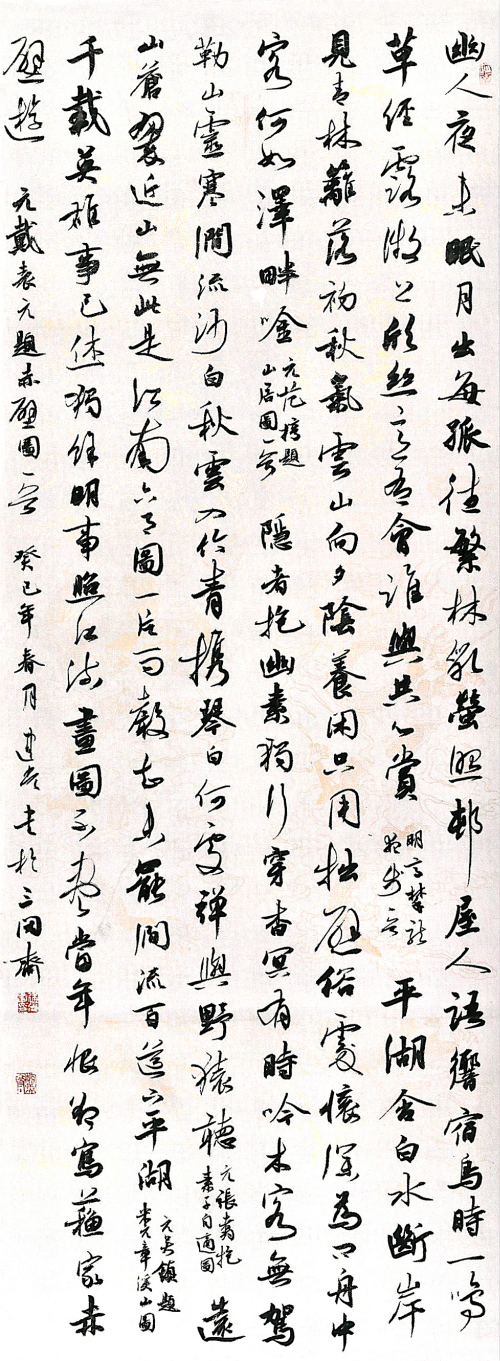 幽人夜未眠月出每孤往繁林亂螢照邨屋人語響宿鳥時一鳴
草徑露微上欣然意有會誰與共心賞 明高攀龍 夜步一首 平湖含白水斷岸
見青林籬落初秋氣雲山向夕陰養閑只用拙避俗處懷深為口舟中
客何如澤畔唫 元范梈題 山居圖一首 隱者抱幽素獨行穿杳冥有時吟木客無駕
勒山靈寒澗流沙白秋雲入竹青攜琴向何處彈與野猿聽 元張翥抱 素子自適圖 遠
山蒼翠近山無此是江南六月圖一片雨聲知未罷澗流百道下平湖 元吳鎮題 米元章溪山圖
千載英雄事已休獨餘明事照江流畫圖不盡當年恨卻寫蘇家赤
壁遊 元戴表元題赤壁圖一首 癸巳年春月 於三同齋